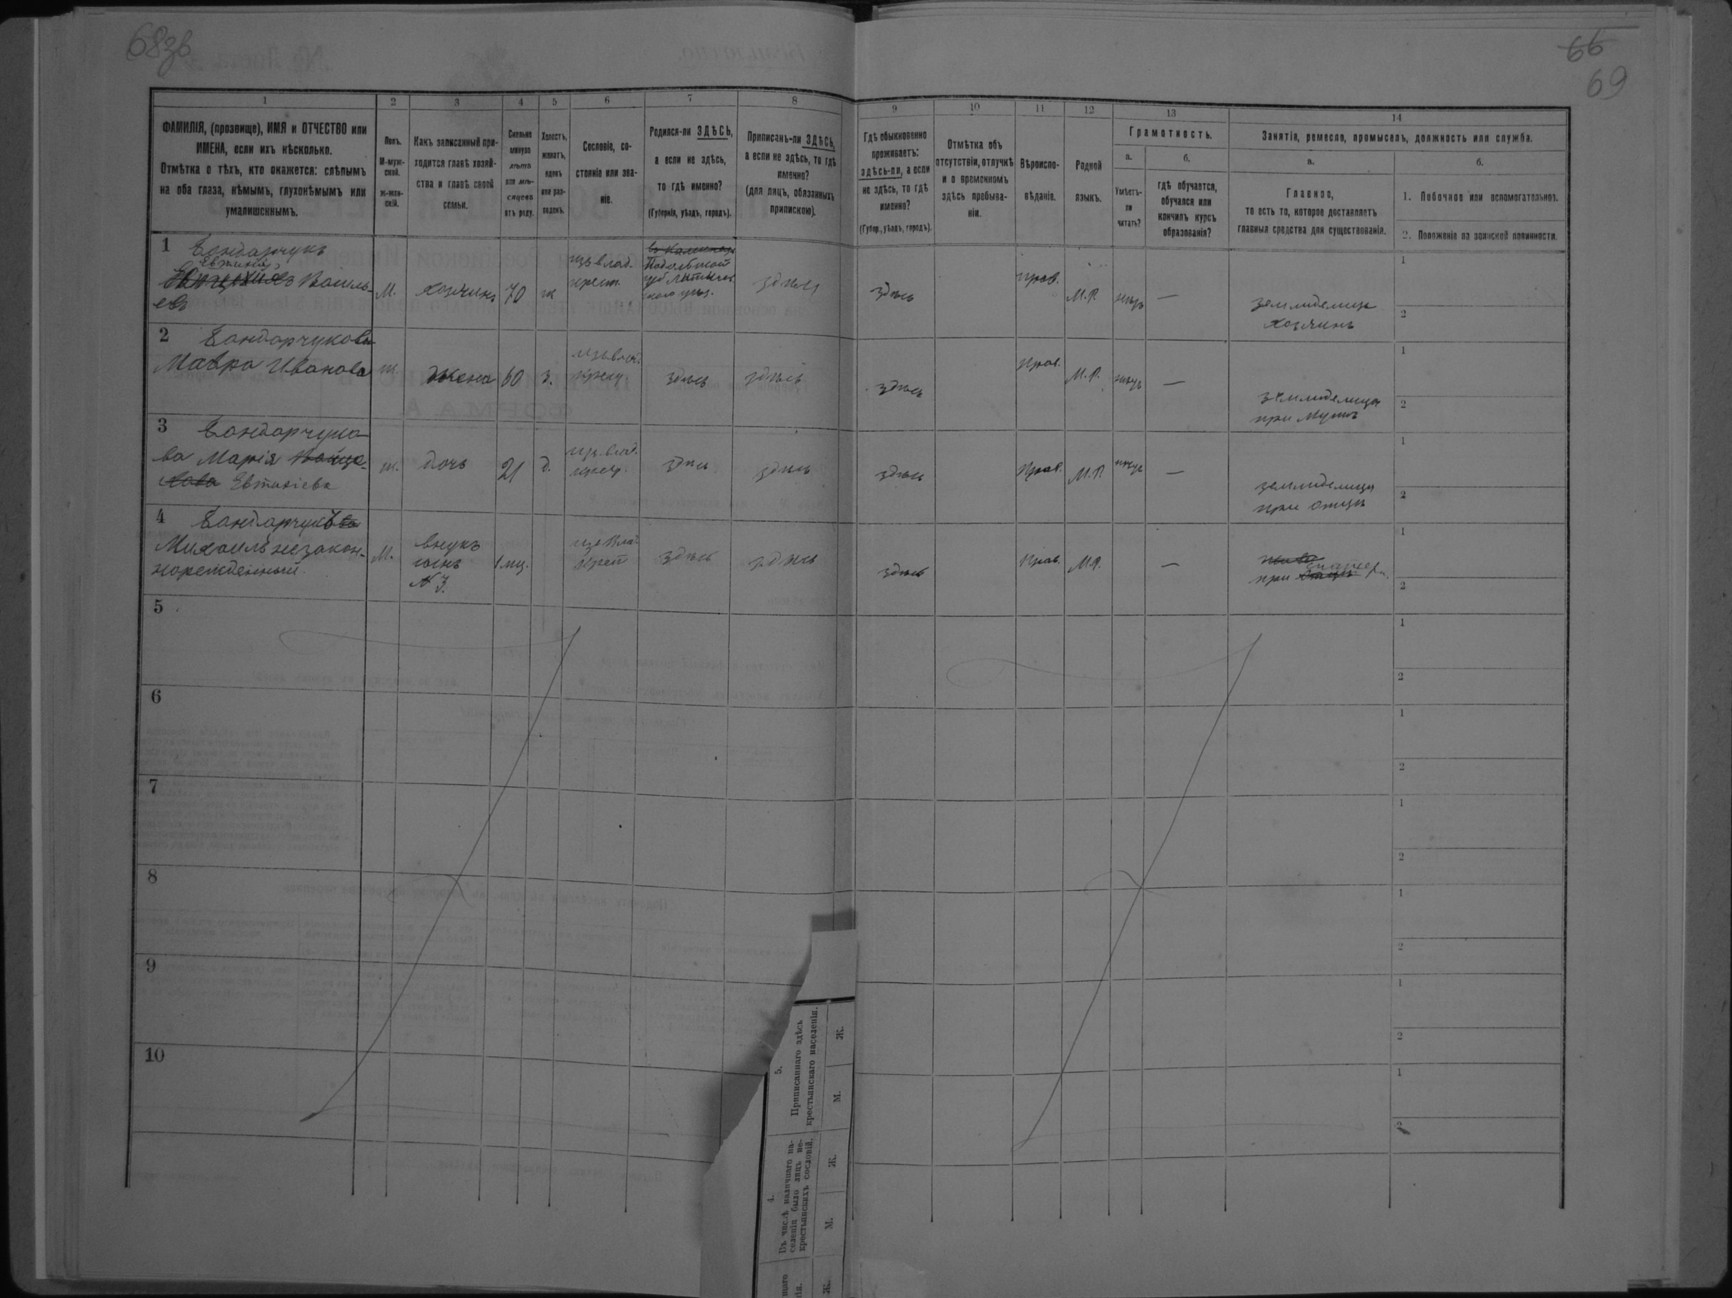 68зв
66
69
1
2
3
4
5
6
7
8
9
10
11
12
13
14
ФАМИЛІЯ, (прозвище), ИМЯ и ОТЧЕСТВО или
ИМЕНА, если ихъ нѣсколько.
Отмѣтка о тѣхъ, кто окажется: слѣпымъ
на оба глаза, нѣмымъ, глухонѣмымъ или
умалишеннымъ.
Полъ.
М-муж-
ской.
ж-жен-
скій.
Какъ записанный при-
ходится главѣ хозяй-
ства и главѣ своей
семьи.
Сколько
минуло
лѣтъ
или мѣ-
сяцевъ
отъ роду.
Холостъ,
женатъ,
вдовъ
или раз-
веденъ.
Сословіе, со-
стояніе или зва-
ніе.
Родился-ли ЗДѢСЬ,
а если не здѣсь,
то гдѣ именно?
(Губернія, уѣздъ, городъ).
Приписанъ-ли ЗДѢСЬ,
а если не здѣсь, то гдѣ
именно?
(для лицъ, обязанныхъ
припискою).
Гдѣ обыкновенно
проживаетъ:
здѣсь-ли, а если
не здѣсь, то гдѣ
именно?
(Губер., уѣздъ, городъ).
Отмѣтка объ
отсутствіи, отлучкѣ
и о временномъ
здѣсь пребыва-
ніи.
Вѣроиспо-
вѣданіе.
Родной
языкъ.
Грамотность.
а.
Умѣетъ-
ли
читать?
б.
гдѣ обучается,
обучался или
кончилъ курсъ
образованія?
Занятія, ремесло, промыселъ, должность или служба.
а.
Главное,
то есть то, которое доставляетъ
главныя средства для существованія.
б.
1. Побочное или вспомогательное.
2. Положеніе по воинской повинности.
1 Бондарчукъ
Евтихій
Василь-
евъ
М.
хозяинъ
70
ж
изъ влад.
крест.
Подольской
губ. Литын
скаго уѣз.
здѣсь
здѣсь
прав.
М.Р.
нѣтъ
—
земледелец
хозяинъ
1
2
2 Бондарчукова
Мавра Иванова
ж.
жена
60
з.
изъ влад.
крест.
здѣсь
здѣсь
здѣсь
Прав.
М.Р.
нѣтъ
—
земледелица
при мужѣ
1
2
3 Бондарчуко
ва Марія
Евтихіева
ж.
дочь
21
д.
изъ влад.
крест.
здѣсь
здѣсь
здѣсь
Прав.
М.Р.
нѣтъ
—
земледелица
при отцѣ
1
2
4 Бондарчукъ
Михаилъ незакон-
норожденный
М.
внукъ
сынъ
№ 3.
1 мц.
изъ влад.
крест
здѣсь
здѣсь
здѣсь
Прав.
М.Р.
—
при матер.
1
2
5
1
2
6
1
2
7
1
2
8
1
2
9
1
2
10
1
2
5.
Приписаннаго здѣсь
крестьянскаго населенія.
М.
Ж.
4.
Въ числѣ наличнаго на-
селенія было лицъ не-
крестьянскихъ сословій.
М.
Ж.
Ж.